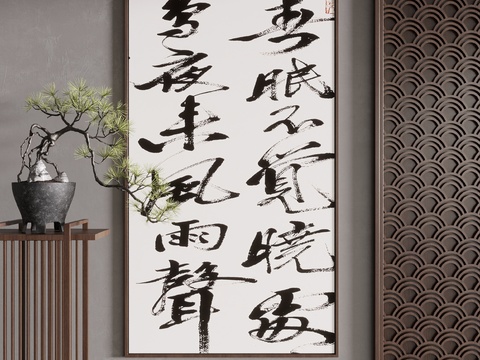 春眠不覺曉處
鳥夜来風雨聲